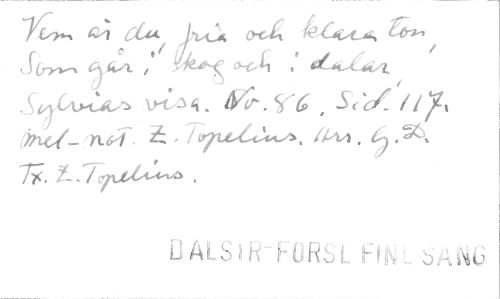 Vem är du, fria och klara ton,
Som går i skog och i dalar,
Sylvias visa. No. 86, Sid. 117.
mel-not. Z. Topelius. Arr. G. D.
Tx. Z. Topelius.
DALSTR-FORSL FINL SÅNG